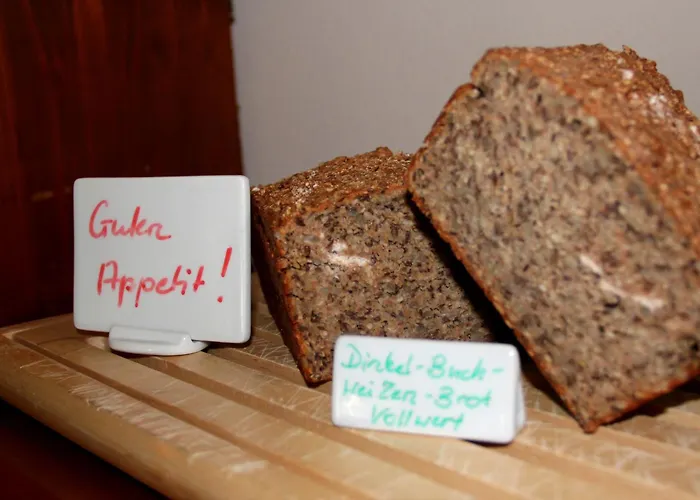 Guten
Appetit!
Dinkel-Buch-
weizen-Brot
Vollwert